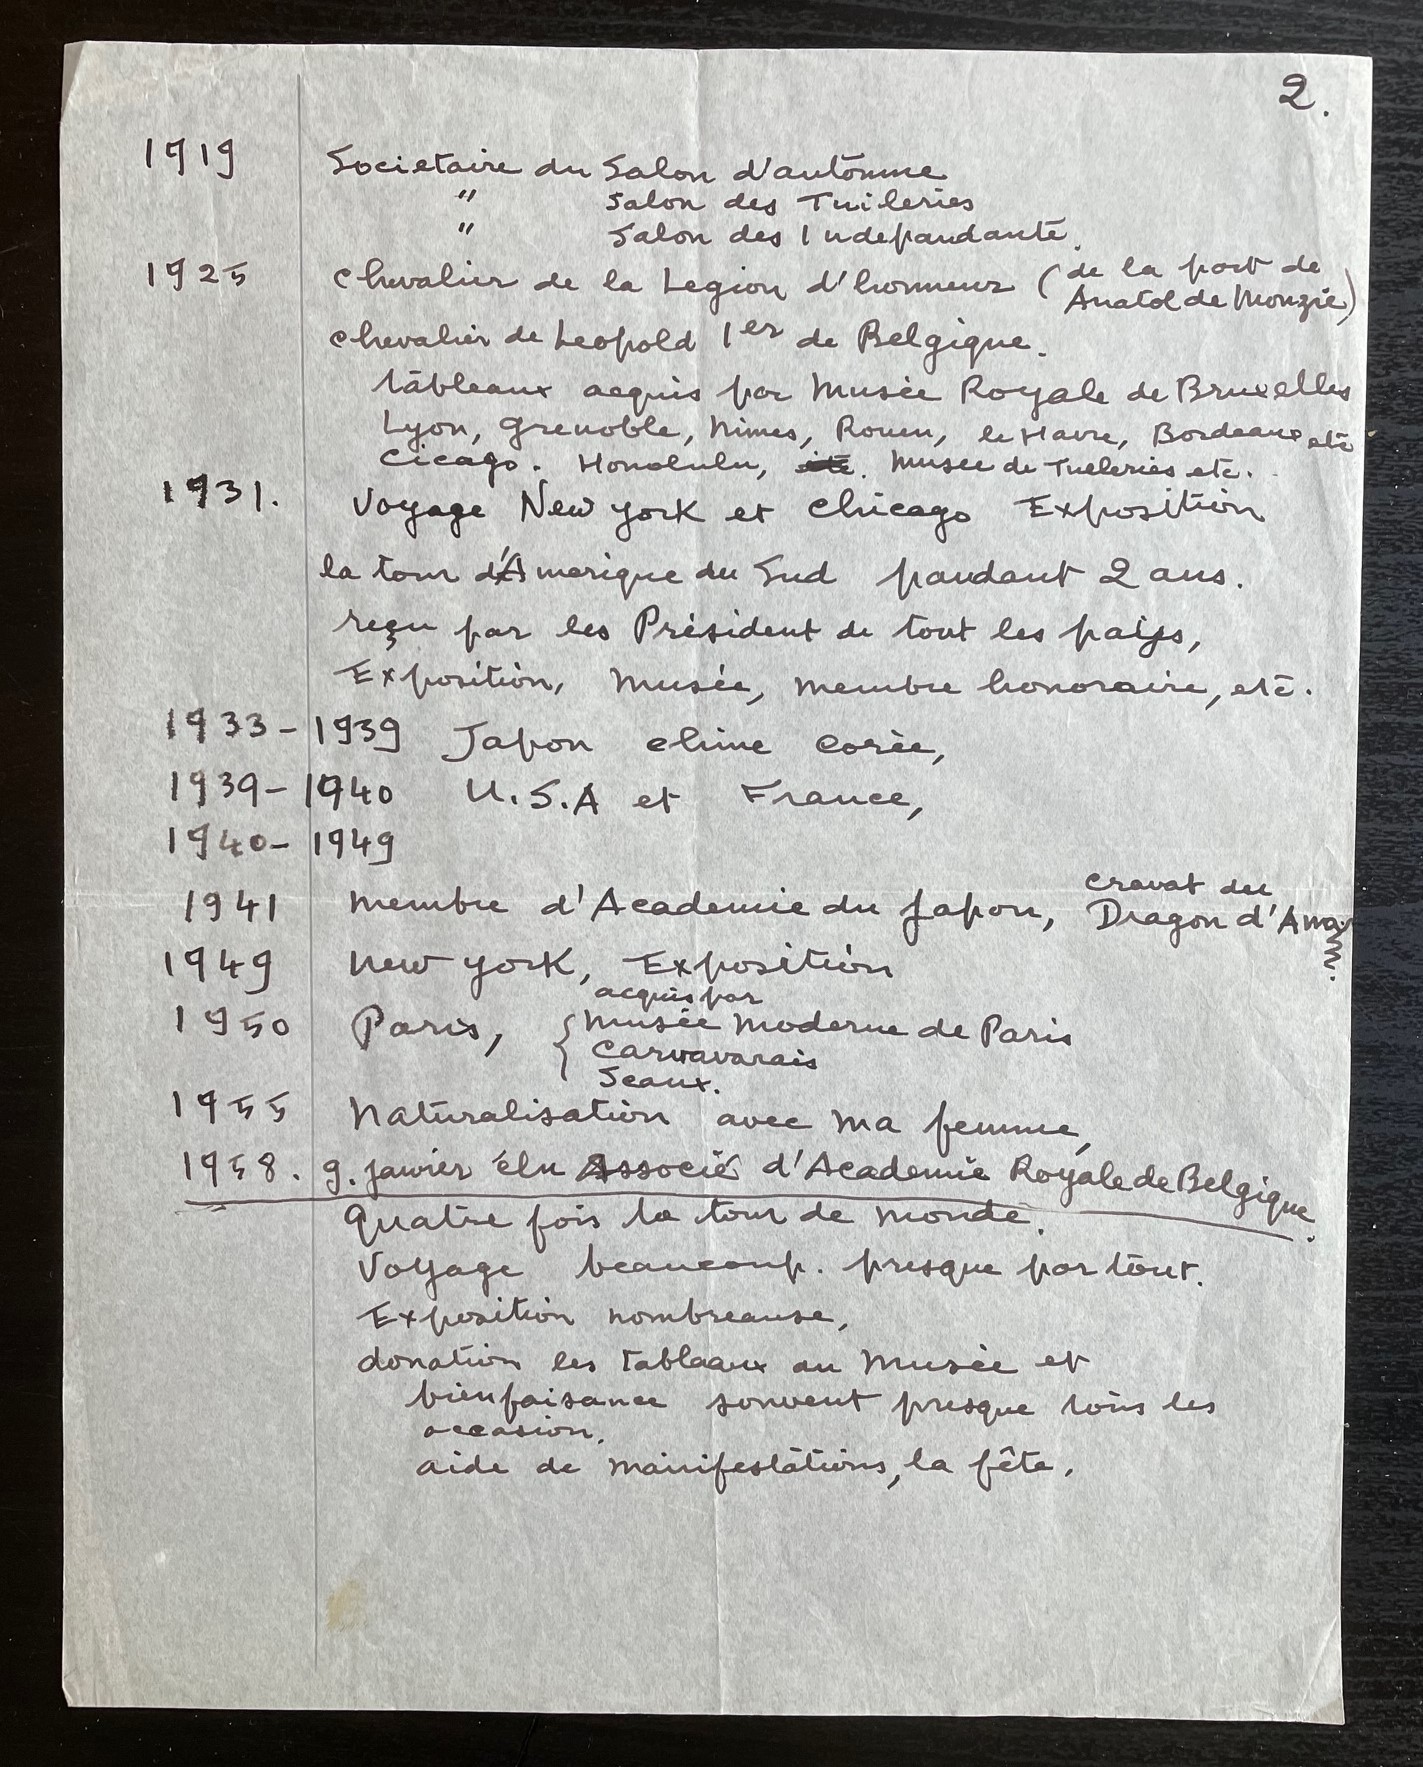 2.
1919 Societaire du Salon d'autōmne
" Salon des Tuileries
" Salon des Indepandante.
1925 chevalier de la Legion d'honneur (de la part de
Anatol de Monzie)
chevalier de Leopold 1er de Belgique.
tableaux acquis par Musée Royale de Bruxelles
Lyon, Grenoble, Nimes, Rouen, le Havre, Bordeaux etc
Cicago. Honolulu, etc. Musée de Tueleries etc.
1931. Voyage New York et Chicago Exposition
la tour d'Amerique du Sud pandant 2 ans.
reçu par les Président de tout les pays,
Exposition, Musée, membre honoraire, etc.
1933-1939 Japon chine corée,
1939-1940 U.S.A et France,
1940-1949
cravat du
1941 Membre d'Academie du Japon, Dragon d'Anam
1949 New York, Exposition
acquis par
1950 Paris, { Musée Moderne de Paris
Carvavarais
Seaux.
1955 Naturalisation avec ma femme,
1958. 9. janvier élu Associé d'Academie Royale de Belgique.
Quatre fois la tour de monde.
Voyage beaucoup. presque par tout.
Exposition nombreause,
donation les tableaux au Musée et
bienfaisance souvent presque tous les
occasion.
aide de manifestations, la fête.